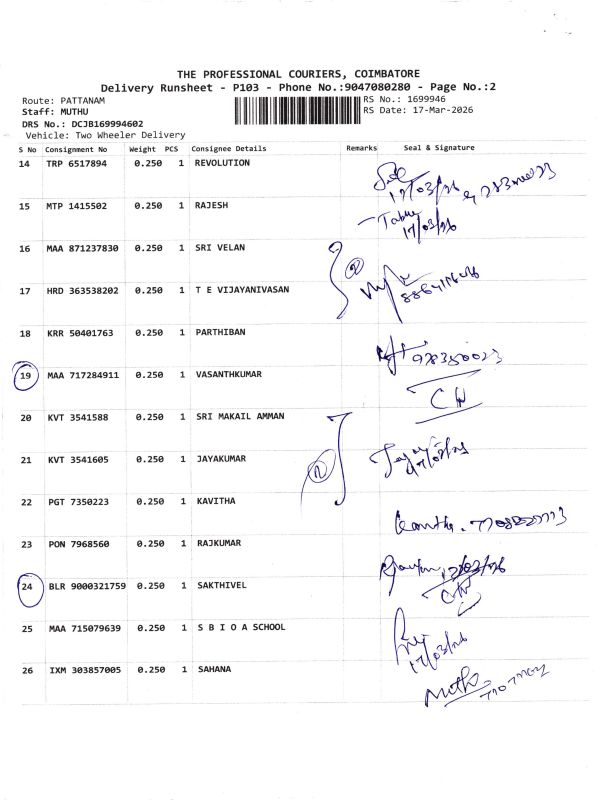 THE PROFESSIONAL COURIERS, COIMBATORE
Delivery Runsheet - P103 - Phone No.:9047080280 - Page No.:2
Route: PATTANAM
Staff: MUTHU
DRS No.: DCJB169994602
Vehicle: Two Wheeler Delivery
RS No.: 1699946
RS Date: 17-Mar-2026
S No Consignment No Weight PCS Consignee Details Remarks Seal & Signature
14 TRP 6517894 0.250 1 REVOLUTION
17/03/26
15 MTP 1415502 0.250 1 RAJESH
17/03/26
16 MAA 871237830 0.250 1 SRI VELAN
2
17 HRD 363538202 0.250 1 T E VIJAYANIVASAN
18 KRR 50401763 0.250 1 PARTHIBAN
19 MAA 717284911 0.250 1 VASANTHKUMAR
20 KVT 3541588 0.250 1 SRI MAKAIL AMMAN
21 KVT 3541605 0.250 1 JAYAKUMAR
22 PGT 7350223 0.250 1 KAVITHA
23 PON 7968560 0.250 1 RAJKUMAR
17/03/26
24 BLR 9000321759 0.250 1 SAKTHIVEL
25 MAA 715079639 0.250 1 S B I O A SCHOOL
17/03/26
26 IXM 303857005 0.250 1 SAHANA